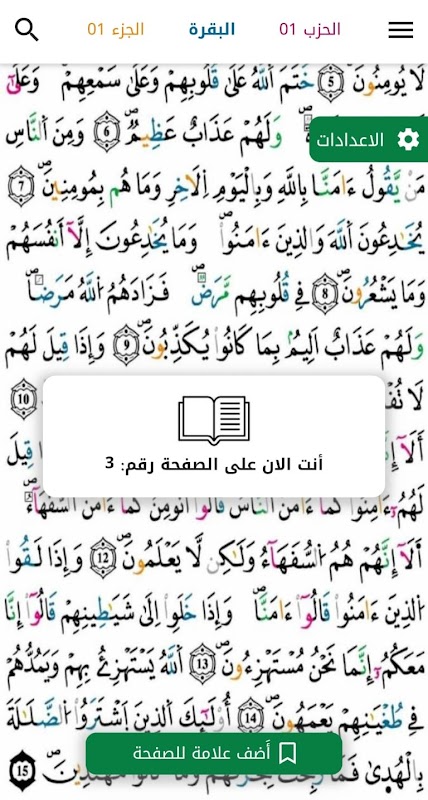 الحزب 01
البقرة
الجزء 01
لَا يُومِنُونَ 5 خَتَمَ اَ۬للَّهُ عَلَىٰ قُلُوبِهِمْ وَعَلَىٰ سَمْعِهِمْ وَعَلَىٰٓ
وَلَهُمْ عَذَابٌ عَظِيمٌ 6 وَمِنَ اَ۬لنَّاسِ
الاعدادات
مَنْ يَّقُولُ ءَامَنَّا بِاللَّهِ وَبِالْيَوْمِ اِ۬لَاخِرِ وَمَا هُم بِمُومِنِينَ 7
يُخَٰدِعُونَ اَ۬للَّهَ وَالذِينَ ءَامَنُواْ وَمَا يُخَٰدِعُونَ إِلَّآ أَنفُسَهُمْ
وَمَا يَشْعُرُونَ 8 فِي قُلُوبِهِم مَّرَضٌ فَزَادَهُمُ اُ۬للَّهُ مَرَضاً
وَلَهُمْ عَذَابٌ اَلِيمُۢ بِمَا كَانُواْ يُكَذِّبُونَ 9 وَإِذَا قِيلَ لَهُمْ
لَا 10
أَلَآ قِيلَ
أنت الان على الصفحة رقم: 3
لَهُمُۥٓ ءَامِنُواْ كَمَآ ءَامَنَ اَ۬لنَّاسُ قَالُوٓاْ أَنُومِنُ كَمَآ ءَامَنَ اَ۬لسُّفَهَآءُ
أَلَآ إِنَّهُمْ هُمُ اُ۬لسُّفَهَآءُ وَلَٰكِن لَّا يَعْلَمُونَ 12 وَإِذَا لَقُواْ
اُ۬لذِينَ ءَامَنُواْ قَالُوٓاْ ءَامَنَّا وَإِذَا خَلَوِاْ اِلَىٰ شَيَٰطِينِهِمْ قَالُوٓاْ إِنَّا
مَعَكُمُۥٓ إِنَّمَا نَحْنُ مُسْتَهْزِءُونَ 13 اَ۬للَّهُ يَسْتَهْزِئُ بِهِمْ وَيَمُدُّهُمْ
فِي طُغْيَٰنِهِمْ يَعْمَهُونَ 14 أُوْلَٰٓئِكَ اَ۬لذِينَ اَ۪شْتَرَوُاْ اُ۬لضَّلَٰلَةَ
بِالْهُدَىٰ 15
أَضف علامة للصفحة